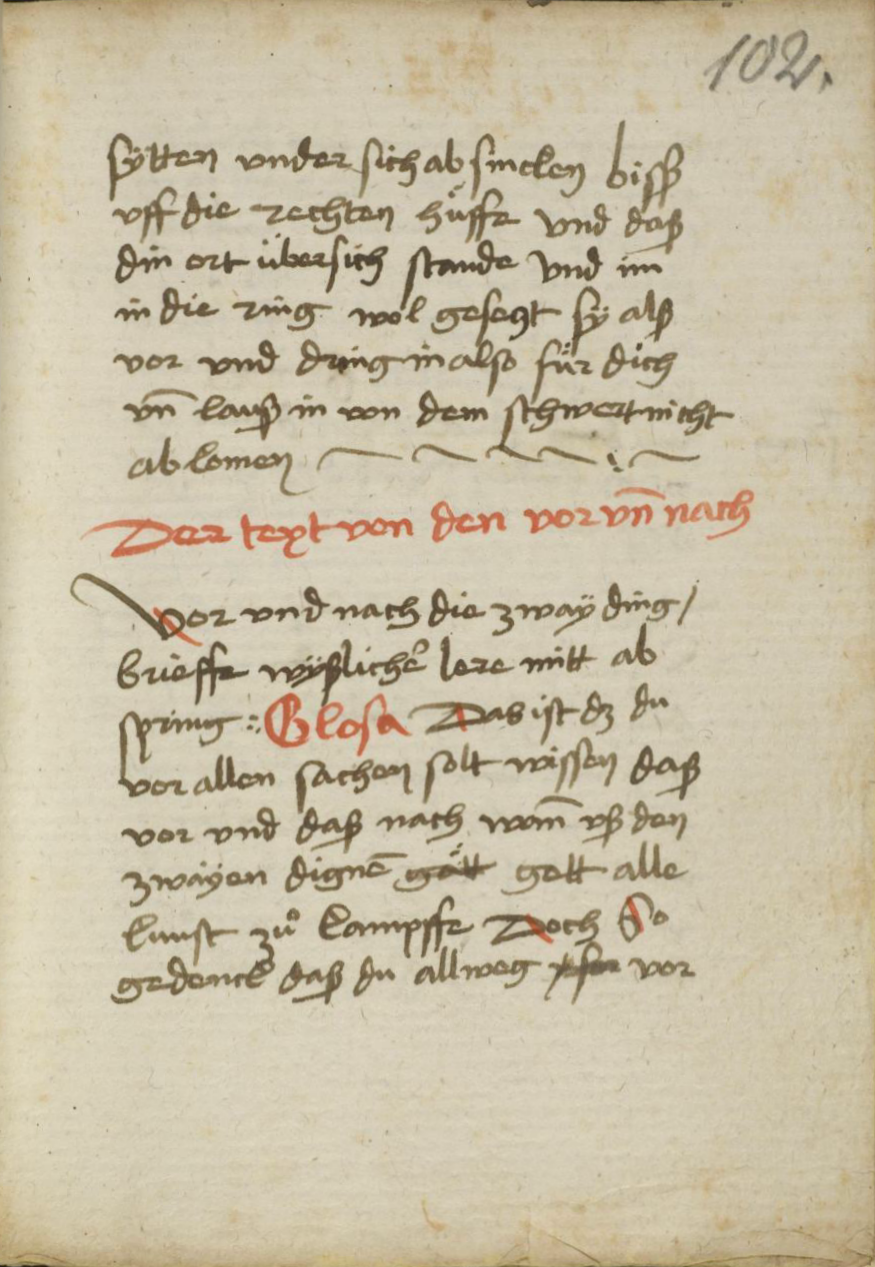 102.
sÿtten vnder sich ab sincken bisß
vff die rechten hüffe vnd daß
din ort übersich stande vnd im
in die ring wol gesetzt sÿ alß
vor vnd dring in also für dich
vn̄ lauß in von dem schwert nicht
ab komen
Der text von den vor vn̄ nach
Vor vnd nach die zwaÿ ding /
brieffe wÿßlicher lere mitt ab
spring :: Glosa Das ist dz du
vor allen sachen solt wissen daß
vor vnd daß nach wann̄ vß den
zwaÿen dignē gätt gett alle
kunst zů kampffe Doch So
gedenck daß du allweg vor